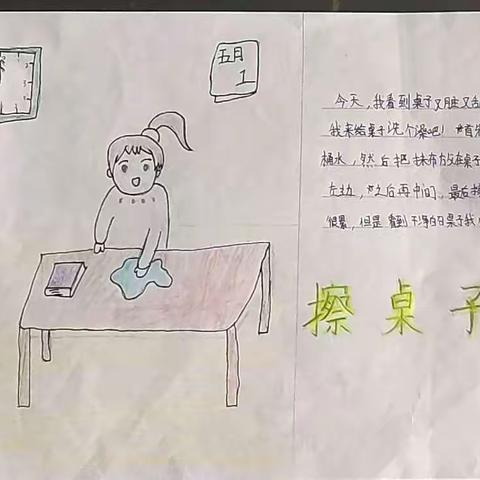 五月
1
今天，我看到桌子又脏又乱
我来给桌子洗个澡吧！首先
桶水，然后把抹布放在桌子
左边，之后再中间，最后擦
很累，但是看到干净的桌子我
擦桌子